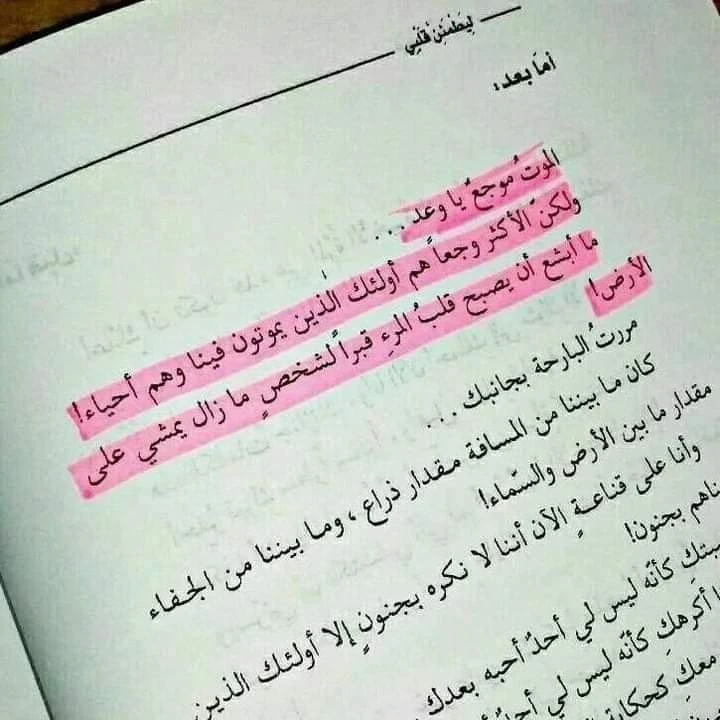 لِيَطْمَئِنَّ قَلْبِي
أمّا بعد:
الموتُ موجعٌ يا وعد...
ولكنّ الأكثر وجعاً هم أولئك الذين يموتون فينا وهم أحياء!
ما أبشع أن يصبح قلبُ المرءِ قبراً لشخصٍ ما زال يمشي على
الأرض!
مررتُ البارحة بجانبك...
كان ما بيننا من المسافة مقدار ذراع، وما بيننا من الجفاء
مقدار ما بين الأرض والسّماء!
وأنا على قناعةٍ الآن أننا لا نكره بجنونٍ إلا أولئك الذين
بجنون!
كأنّه ليس لي أحدٌ أحبه بعدك
أكرهكِ كأنّه ليس لي
معكِ